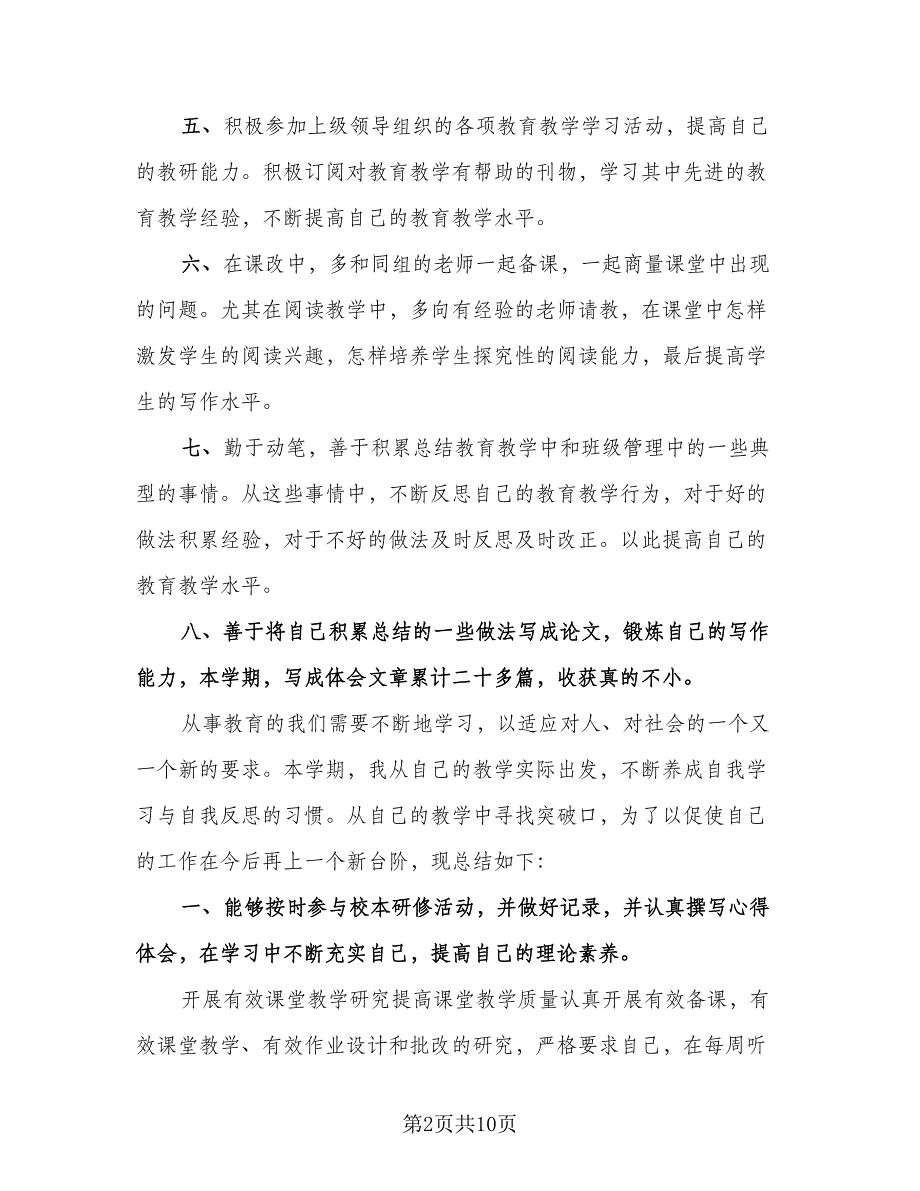 五、积极参加上级领导组织的各项教育教学学习活动，提高自己
的教研能力。积极订阅对教育教学有帮助的刊物，学习其中先进的教
育教学经验，不断提高自己的教育教学水平。
六、在课改中，多和同组的老师一起备课，一起商量课堂中出现
的问题。尤其在阅读教学中，多向有经验的老师请教，在课堂中怎样
激发学生的阅读兴趣，怎样培养学生探究性的阅读能力，最后提高学
生的写作水平。
七、勤于动笔，善于积累总结教育教学中和班级管理中的一些典
型的事情。从这些事情中，不断反思自己的教育教学行为，对于好的
做法积累经验，对于不好的做法及时反思及时改正。以此提高自己的
教育教学水平。
八、善于将自己积累总结的一些做法写成论文，锻炼自己的写作
能力，本学期，写成体会文章累计二十多篇，收获真的不小。
从事教育的我们需要不断地学习，以适应对人、对社会的一个又
一个新的要求。本学期，我从自己的教学实际出发，不断养成自我学
习与自我反思的习惯。从自己的教学中寻找突破口，为了以促使自己
的工作在今后再上一个新台阶，现总结如下：
一、能够按时参与校本研修活动，并做好记录，并认真撰写心得
体会，在学习中不断充实自己，提高自己的理论素养。
开展有效课堂教学研究提高课堂教学质量认真开展有效备课，有
效课堂教学、有效作业设计和批改的研究，严格要求自己，在每周听
第2页共10页